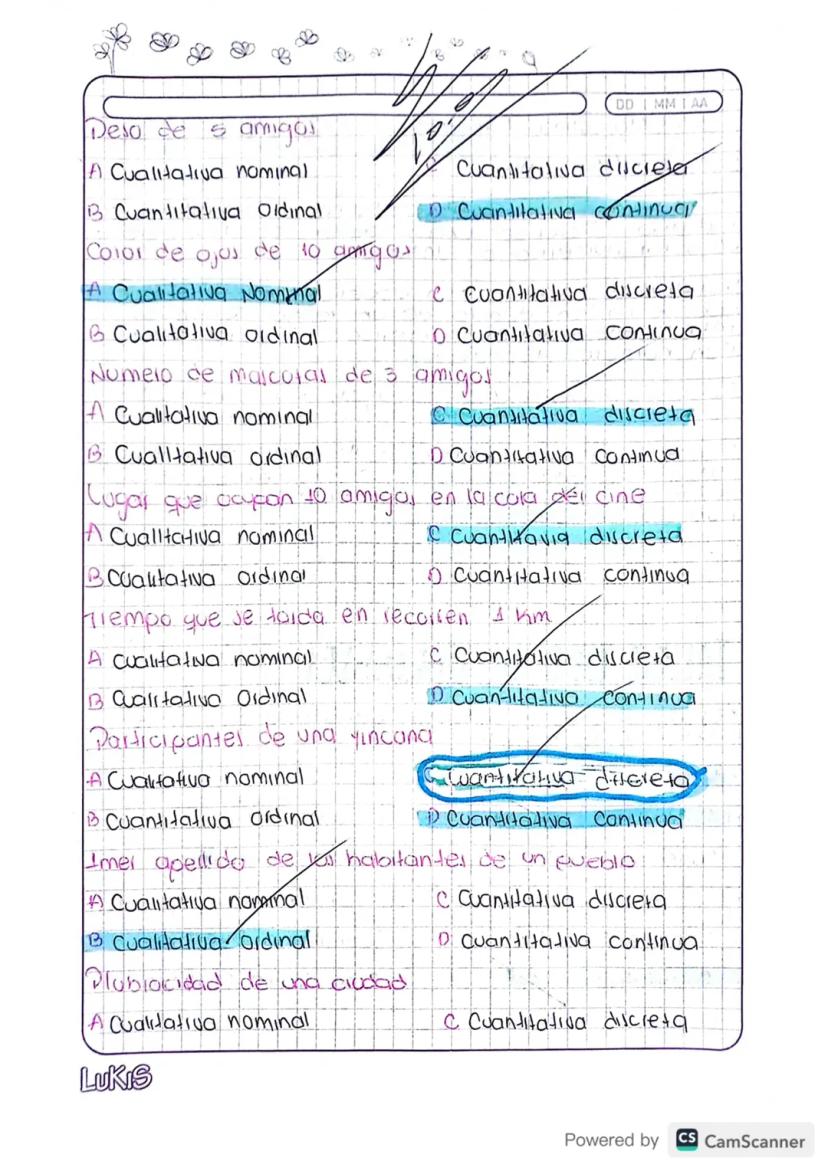 DD | MM | AA
10.0
Peso de 5 amigos
A Cualitativa nominal Cuantitativa discreta
B Cuantitativa Ordinal D Cuantitativa continua
Color de ojos de 10 amigos
A Cualitativa Nominal C Cuantitativa discreta
B Cualitativa ordinal D Cuantitativa continua
Numero de mascotas de 3 amigos
A Cualitativa nominal C Cuantitativa discreta
B Cualitativa ordinal D Cuantitativa continua
Lugar que ocupan 10 amigos en la cola del cine
A Cualitativa nominal C Cuantitavia discreta
B Cualitativa ordinal D Cuantitativa continua
Tiempo que se tarda en recorren 1 Km
A Cualitativa nominal C Cuantitativa discreta
B Cualitativa Ordinal D Cuantitativa continua
Participantes de una yincana
A Cualitativa nominal C Cuantitativa discreta
B Cuantitativa ordinal D Cuantitativa continua
1mer apellido de los habitantes de un pueblo
A Cualitativa nominal C Cuantitativa discreta
B Cualitativa ordinal D Cuantitativa continua
Plubiocidad de una ciudad
A Cualitativa nominal C Cuantitativa discreta
LUKIS
Powered by CS CamScanner